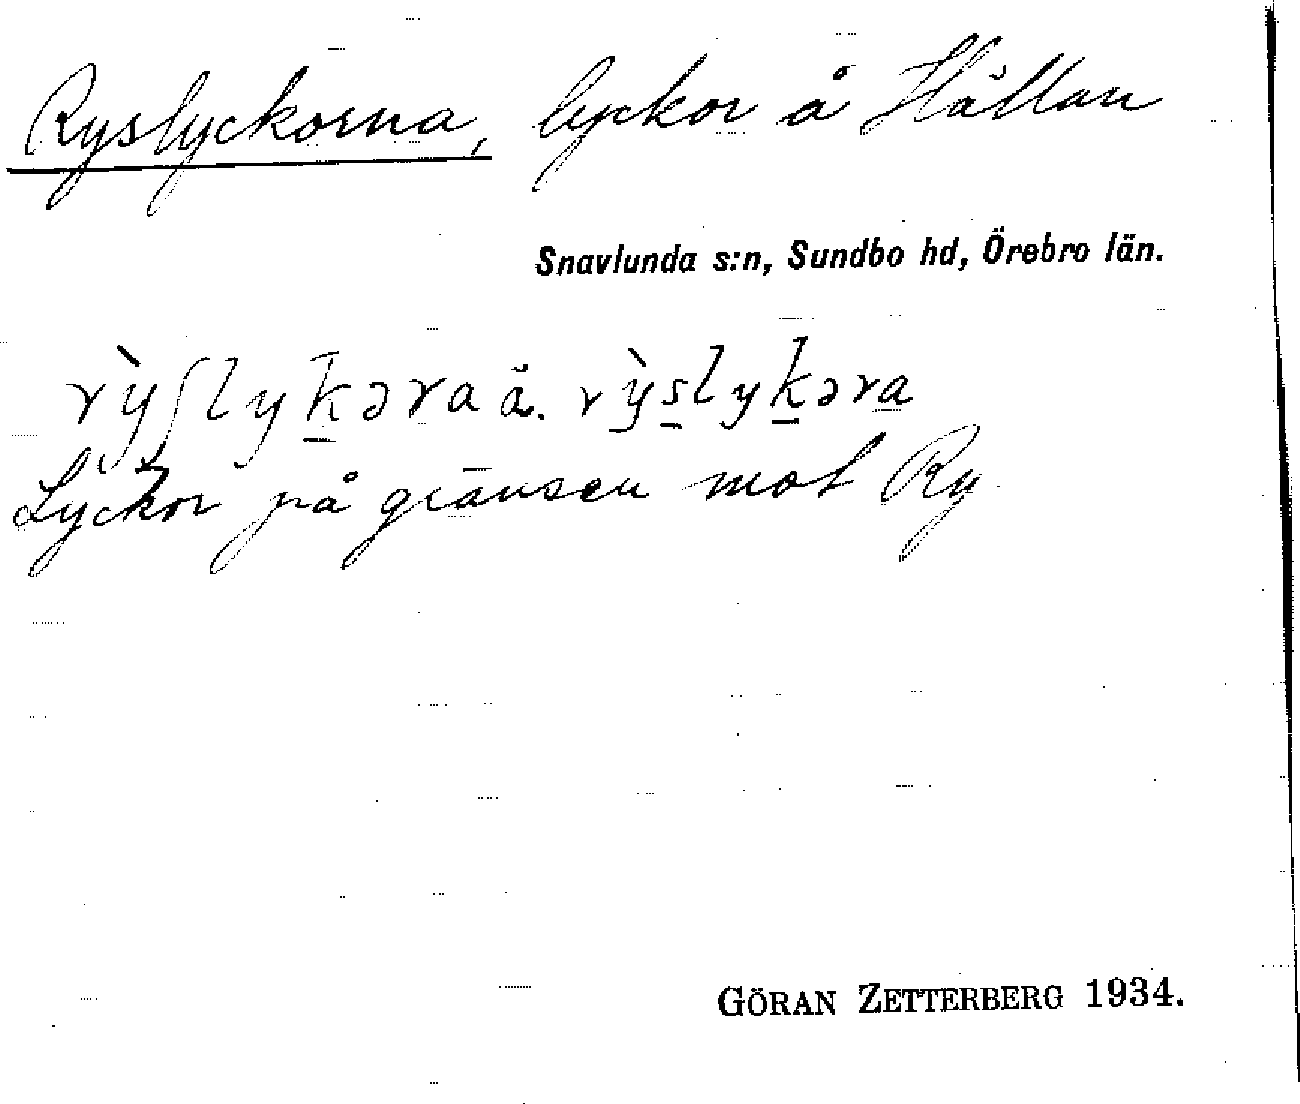 Ryslyckorna, lyckor å Hållan
Snavlunda s:n, Sundbo hd, Örebro län.
rỳʃlyk̲əra ä. rỳs̲lyk̲əra̲
Lyckor på gränsen mot Ry
GÖRAN ZETTERBERG 1934.